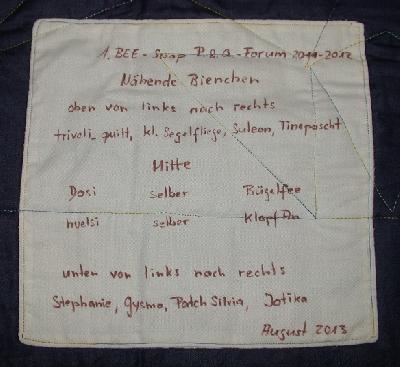 1. BEE - Swap P. & Q. - Forum 2011-2012
Nähende Bienchen
oben von links nach rechts
trivoli_quilt, kl. Segelfliege, Suleon, Tinepascht
Mitte
Dosi selber Bügelfee
huelsi selber KlopfAn
unten von links nach rechts
Stephanie, Gysmo, Patch Silvia, Jotika
August 2013